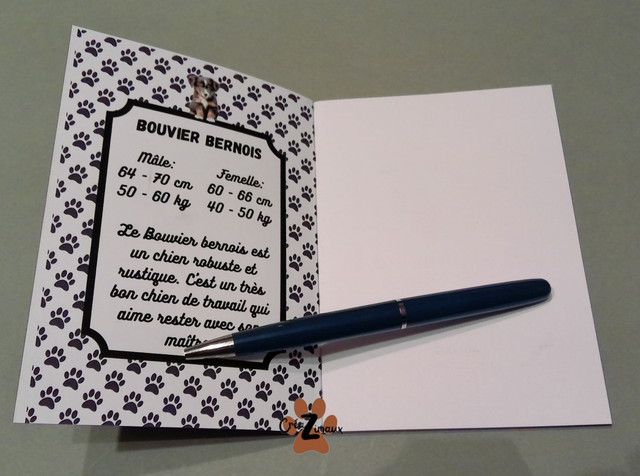 BOUVIER BERNOIS
Mâle:
64 - 70 cm
50 - 60 kg
Femelle:
60 - 66 cm
40 - 50 kg
Le Bouvier bernois est
un chien robuste et
rustique. C'est un très
bon chien de travail qui
aime rester avec